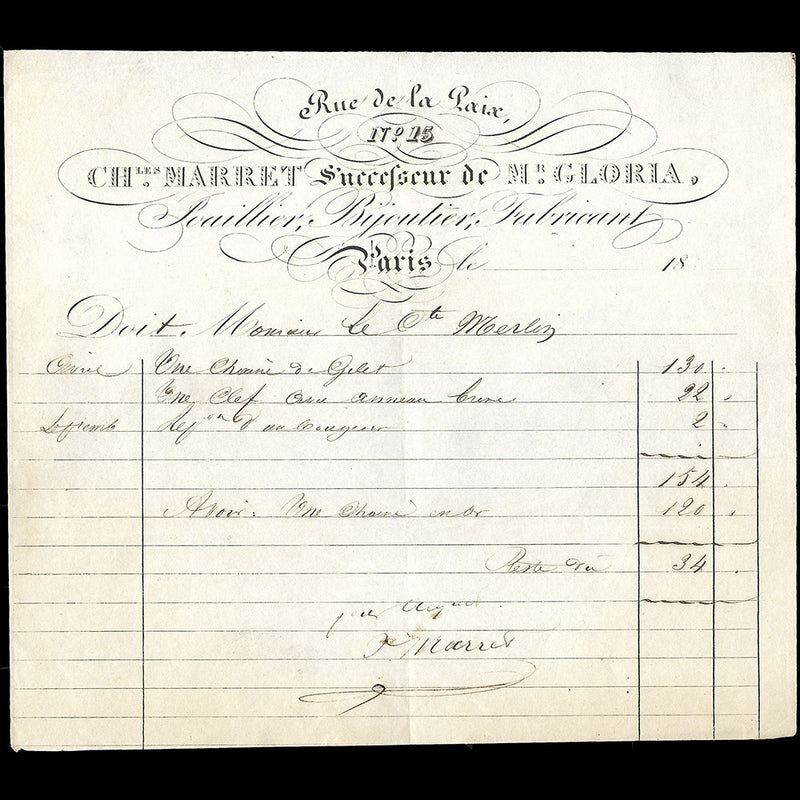 Rue de la Paix,
Nº 15
CH.LES MARRET Successeur de MR. GLORIA,
Joaillier, Bijoutier, Fabricant
Paris, le 18
Doit, Monsieur le Cte Merlin
Avril Une Chaine de Gilet 130
Une Clef avec anneau 22
Septemb Repon d'un 2
154
Avoir: Une Chaine en or 120
Reste dû 34
pour Acquit
Marret